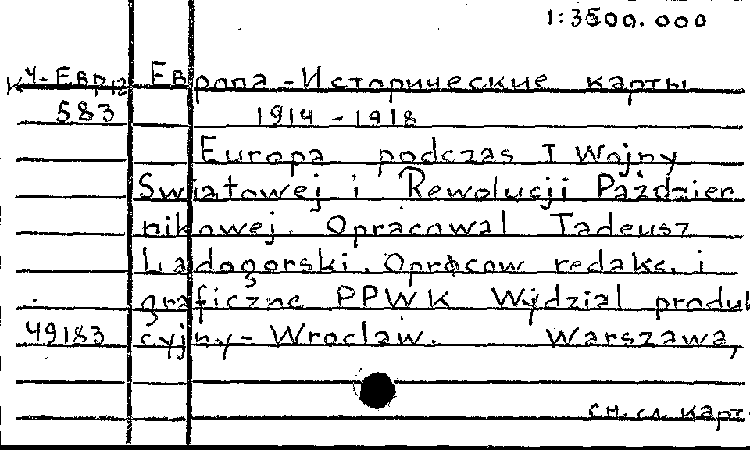 1:3500.000
К4-Евра Европа - Исторические карты
583 1914 - 1918
Europa podczas I Wojny
Swiatowej i Rewolucji Paździer
nikowej. Opracowal Tadeusz
Ladogorski. Oprącow redakc. i
graficzne PPWK Wydzial produk
49183 cyjny - Wroclaw. Warszawa,
сн. сл. карт